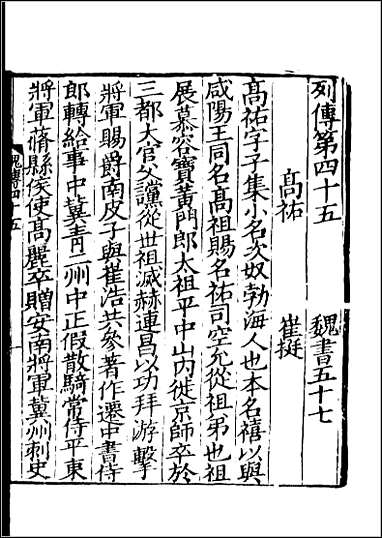 列傳第四十五 魏書五十七
髙祐 崔挺
髙祐字子集小名次奴勃海人也本名禧以與
咸陽王同名髙祖賜名祐司空允從祖弟也祖
展慕容寶黃門郎太祖平中山内徙京師卒於
三都大官父讜從世祖滅赫連昌以功拜游擊
將軍賜爵南皮子與崔浩共參著作遷中書侍
郎轉給事中冀青二州中正假散騎常侍平東
將軍蓨縣侯使髙麗卒贈安南將軍冀州刺史
魏傳四十五